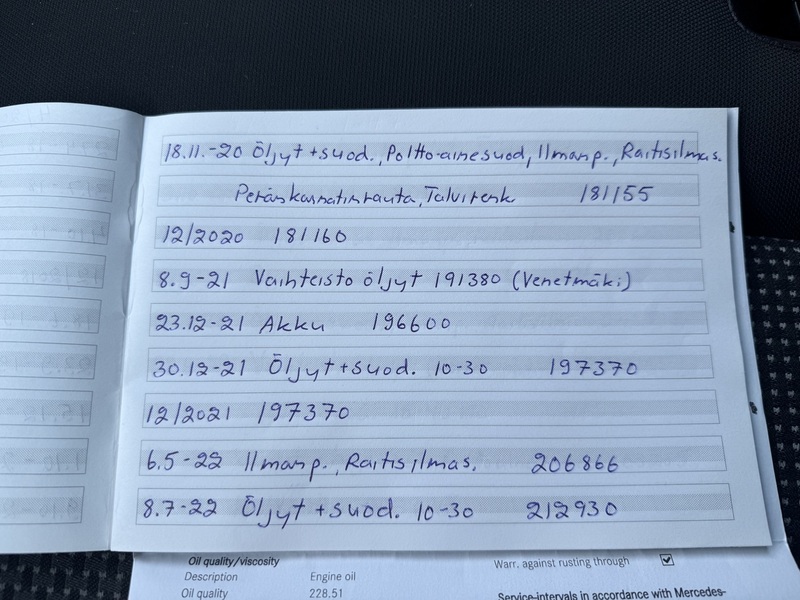 18.11.-20 Öljyt + suod., Poltto-ainesuod, Ilmanp., Raitisilmas.
Peränkannatinrauta, Talvirenk. 181155
12/2020 181160
8.9-21 Vaihteisto öljyt 191380 (Venetmäki)
23.12-21 Akku 196600
30.12-21 Öljyt + suod. 10-30 197370
12/2021 197370
6.5-22 Ilmanp., Raitisilmas. 206866
8.7-22 Öljyt + suod. 10-30 212930
Oil quality/viscosity Warr. against rusting through
Description Engine oil
Oil quality 228.51 Service-intervals in accordance with Mercedes-